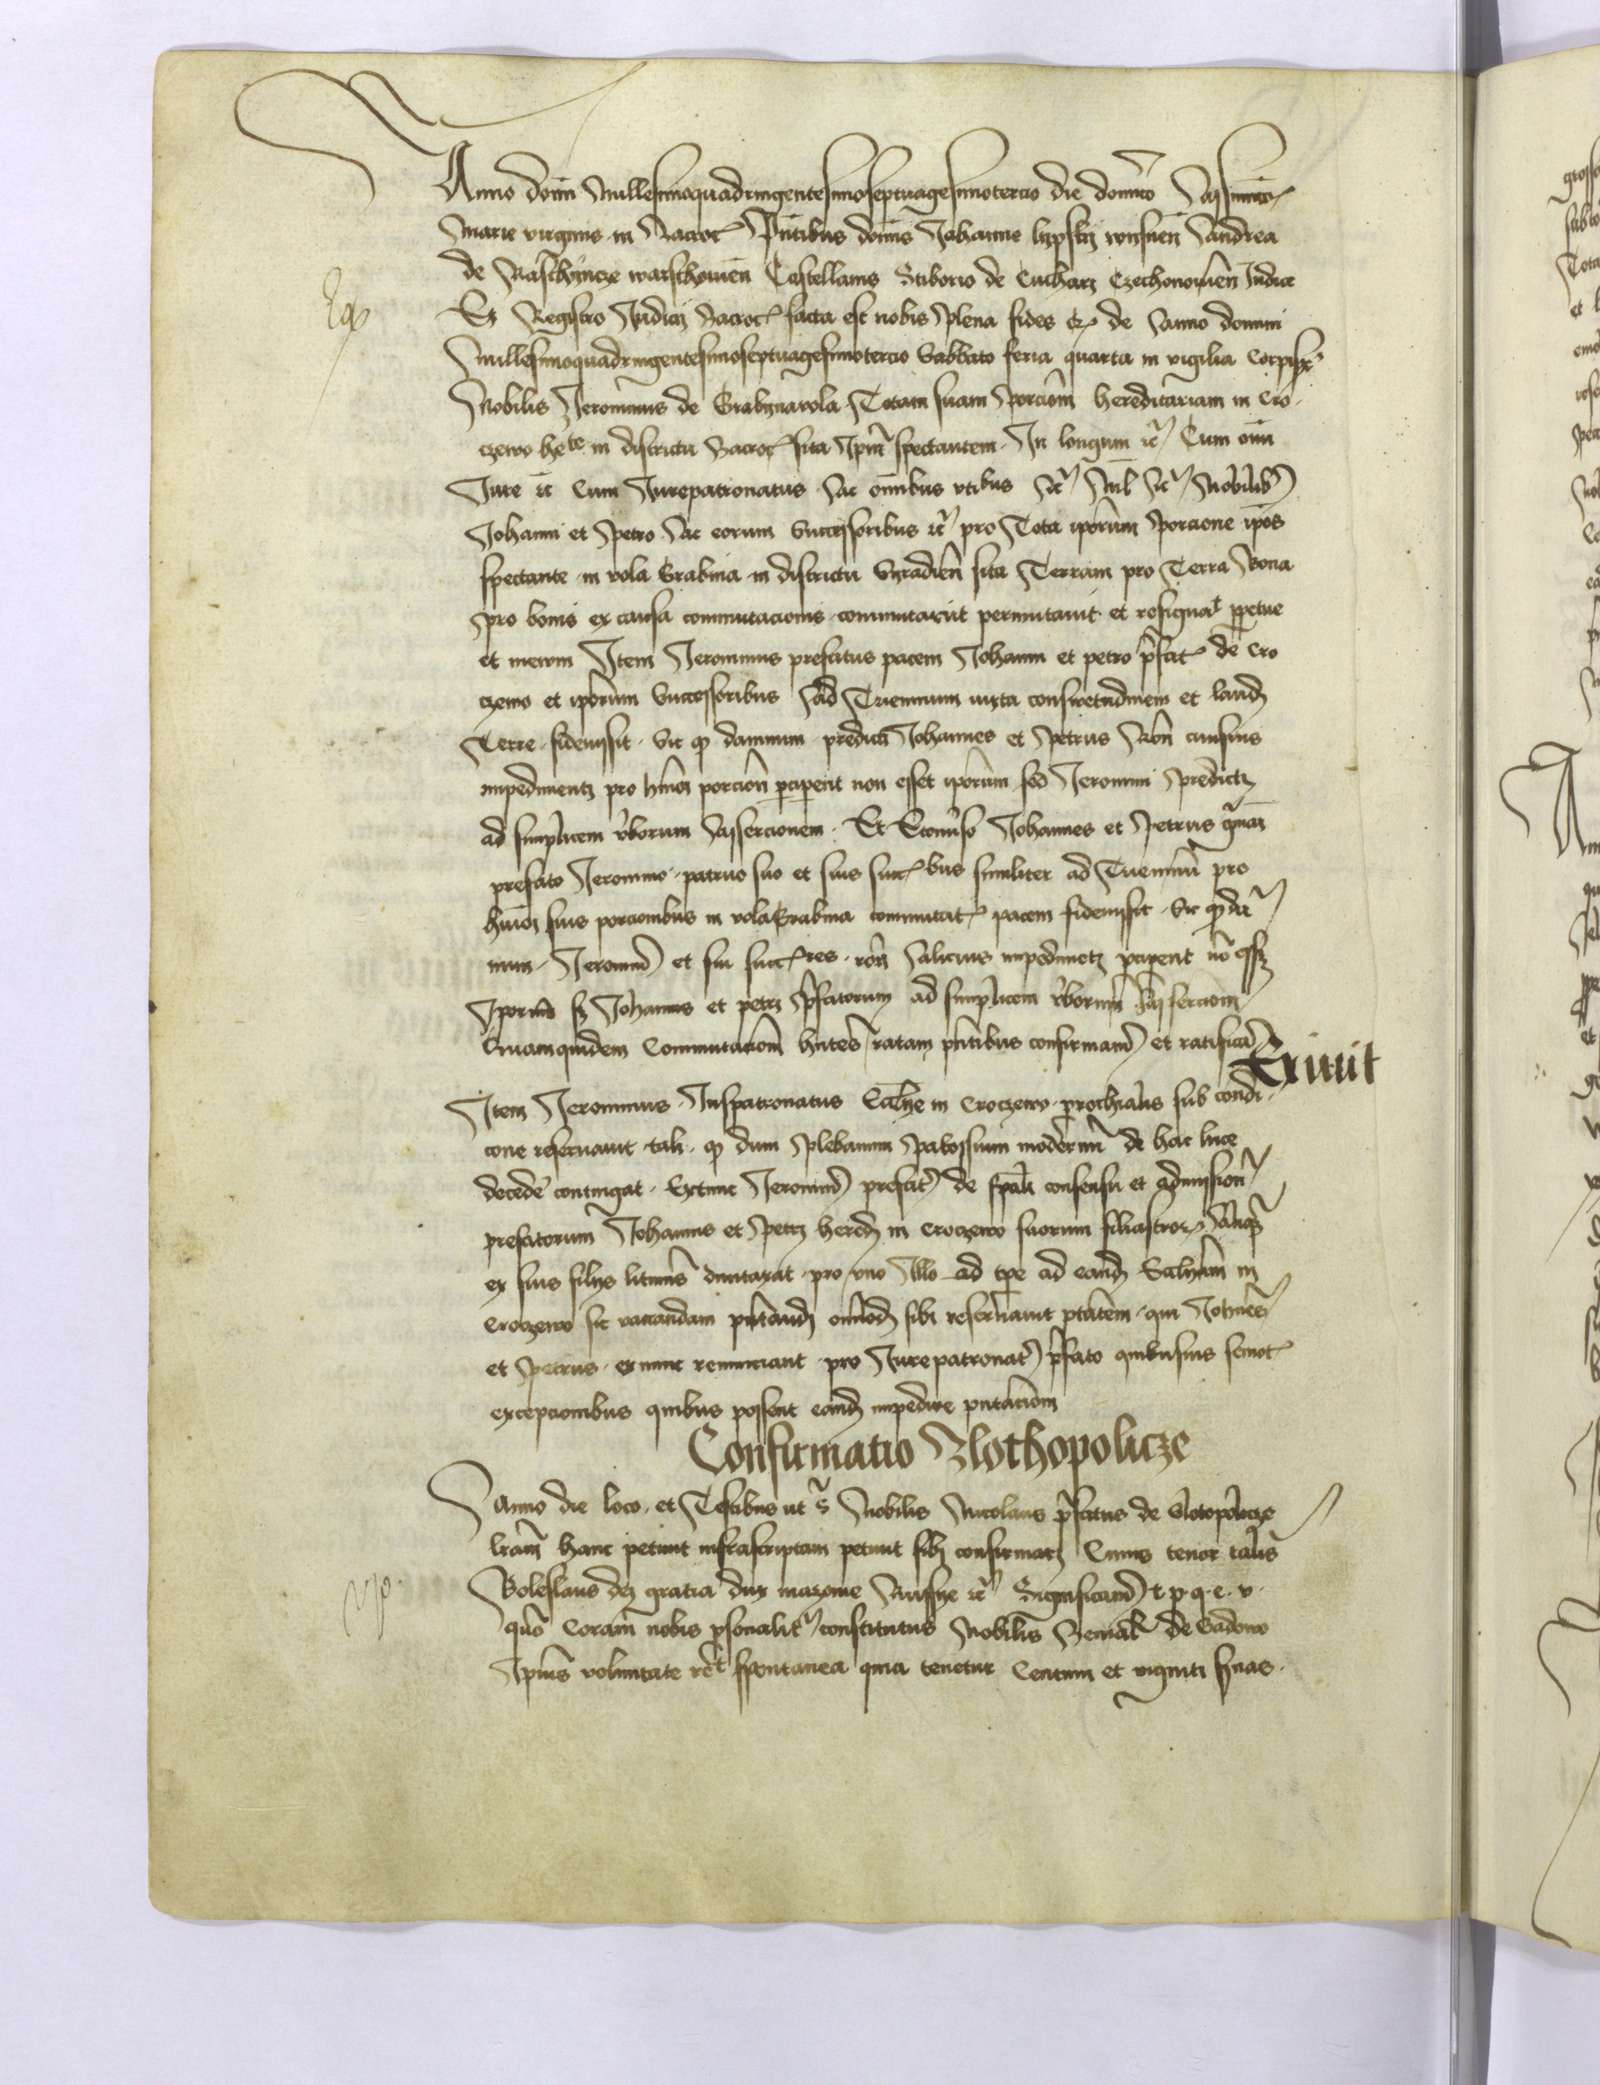 Anno domi Millesimoquadringentesimoseptuagesimotercio die domico Assumcois
Marie virginis in Zacrocz Pntibus domis Johanne lypsky wysnen Andrea
de Raschyncze warschowien Castellanis Stiborio de Cucharz Czechonowien Iudice
Ex Registro Iudicij Zacrocz facta est nobis plena fides etc de Anno domini
Millesimoquadringentesimoseptuagesimotercio Sabbato feria quarta in vigilia Corpis xi
Nobilis Jeronimus de Grabynavola Totam suam porciom hereditariam in Cro
czewo hete in districtu Zacrocz sita Ipm spectantem In longum etc Cum omi
Jure et Cum Jurepatronatus Ac omibus utibus etc Nil etc Nobilib
Johanni et Petro Ac eorum Successoribus etc pro Tota iporum porcione ipos
spectante in vola Grabina in districtu Syradien sita Terram pro Terra Bona
pro bonis ex causa commutacionis commutavit permutavit et resignat ppetue
et inevum Item Jeronimus prefatus pacem Johanni et petro pfat de Cro
czewo et iporum Successoribus Ad Triennium iuxta consuetudinem et laud
Terre fideiussit Sic q damnum predicti Johannes et Petrus Ron cuiusvis
impedimenti pro hmoi porcion pciperent non esset iporum sed Jeronimi predicti
ad simplicem vborum Assercionem Et Econverso Johannes et Petrus germani
prefato Jeronimo patruo suo et suis succbus similiter ad Triennium pro
hmoi suis porcionibus in vola Grabina commutat pacem fideiussit Sic q da
num Jeronimus et sui succres ron Alicuius impedimeti pciperent no esset
Iporum sz Johannis et petri pfatorum ad simplicem vborum Assercionem
Quamquidem Commutaciom hntes ratam pntibus confirmam et ratificam
Exivit
Item Jeronimus Juspatronatus Ecclie in Croczewo prochialis sub condi
cione reservavit tali q dum plebanum modernum de hac luce
decede contingat Extunc Jeronimus prefatus de spali consensu et admission
prefatorum Johannis et Petri hered in Croczewo suorum filiastror Aliquem
ex suis filijs litimis duntaxat pro uno Illo ad tpe ad eand Eccliam in
Croczewo sic vacandam pntand omod sibi reservavit ptatem qui Johnes
et Petrus exnunc renunciant pro Jurepatronat pfato quibusvis semot
excepcionibus quibus possent eand impedire pntaciom
Confirmatio Zlothopolicze
Anno die loco et Testibus ut s Nobilis Nicolaus pfatus de Slotopolicze
lram hanc petiuit infrascriptam petiuit sibi confirmari Cuius tenor talis
Boleslaus dei gratia dux mazouie Russye etc Significam t p q e v
quo Coram nobis psonalit constitutus Nobilis de Sadowo
Ipius voluntate rect spontanea quia tenetur Centum et viginti